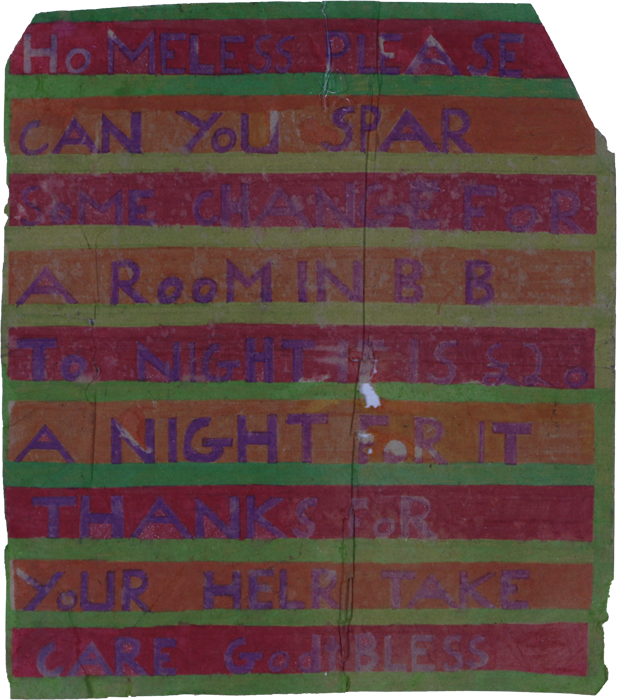 HoMELESS PLEASE
CAN YoU SPAR
SoME CHANGE FoR
A RooM IN B B
To NIGHT IT IS £20
A NIGHT FoR IT
THANKS FoR
YoUR HELP TAKE
CARE GodBLESS